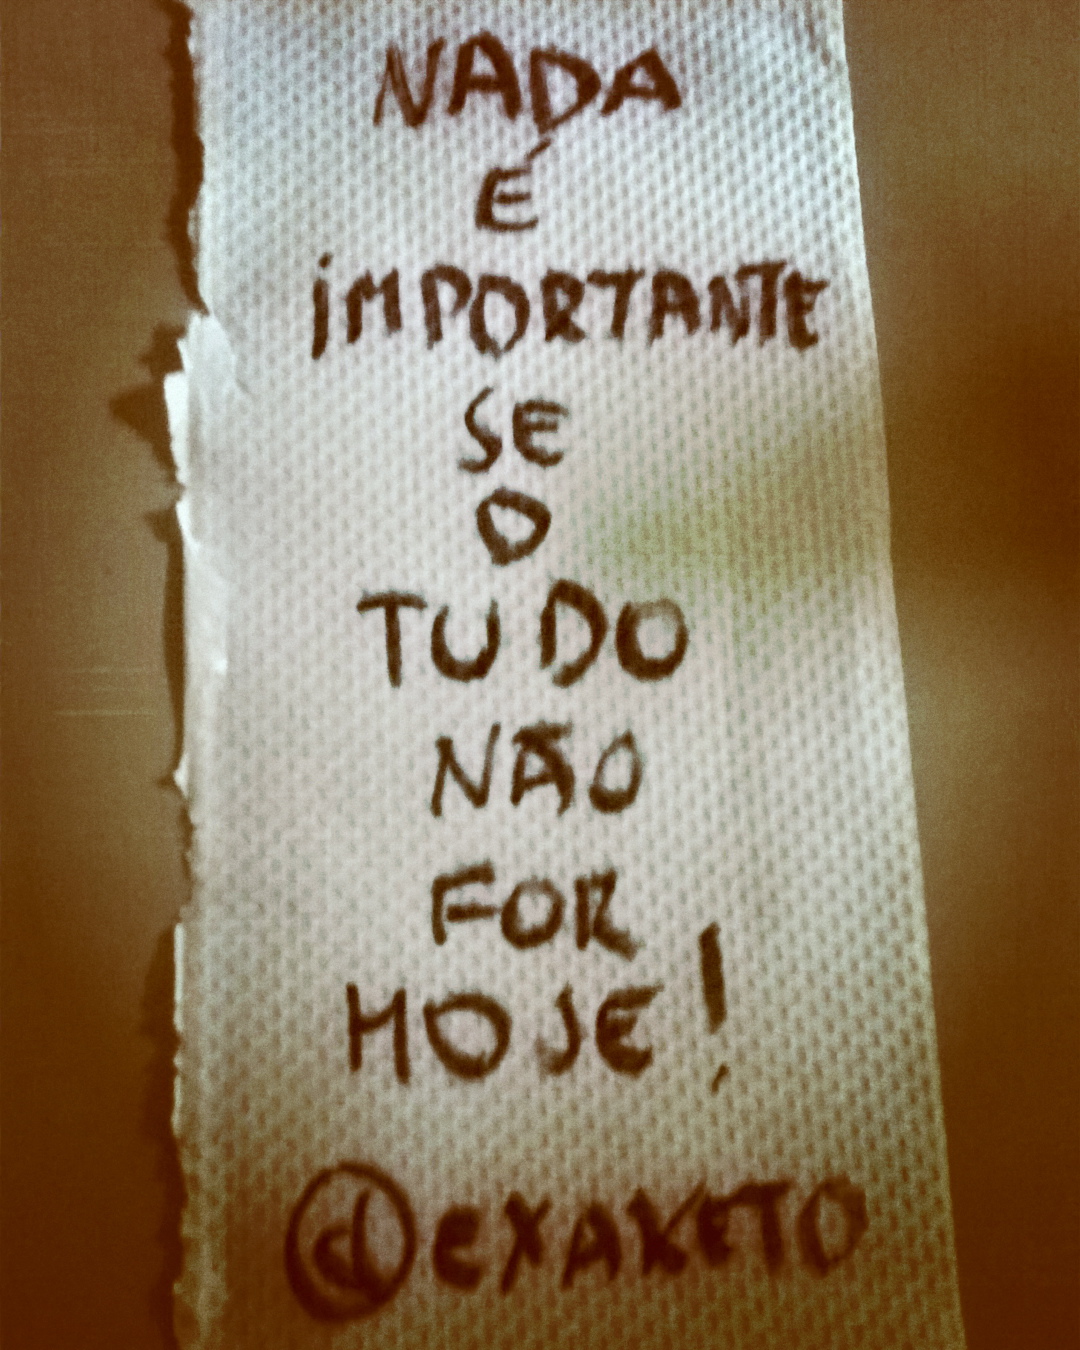 NADA
É
iMPORTANTE
SE
O
TUDO
NÃO
FOR
HOJE!
@eXAKETO